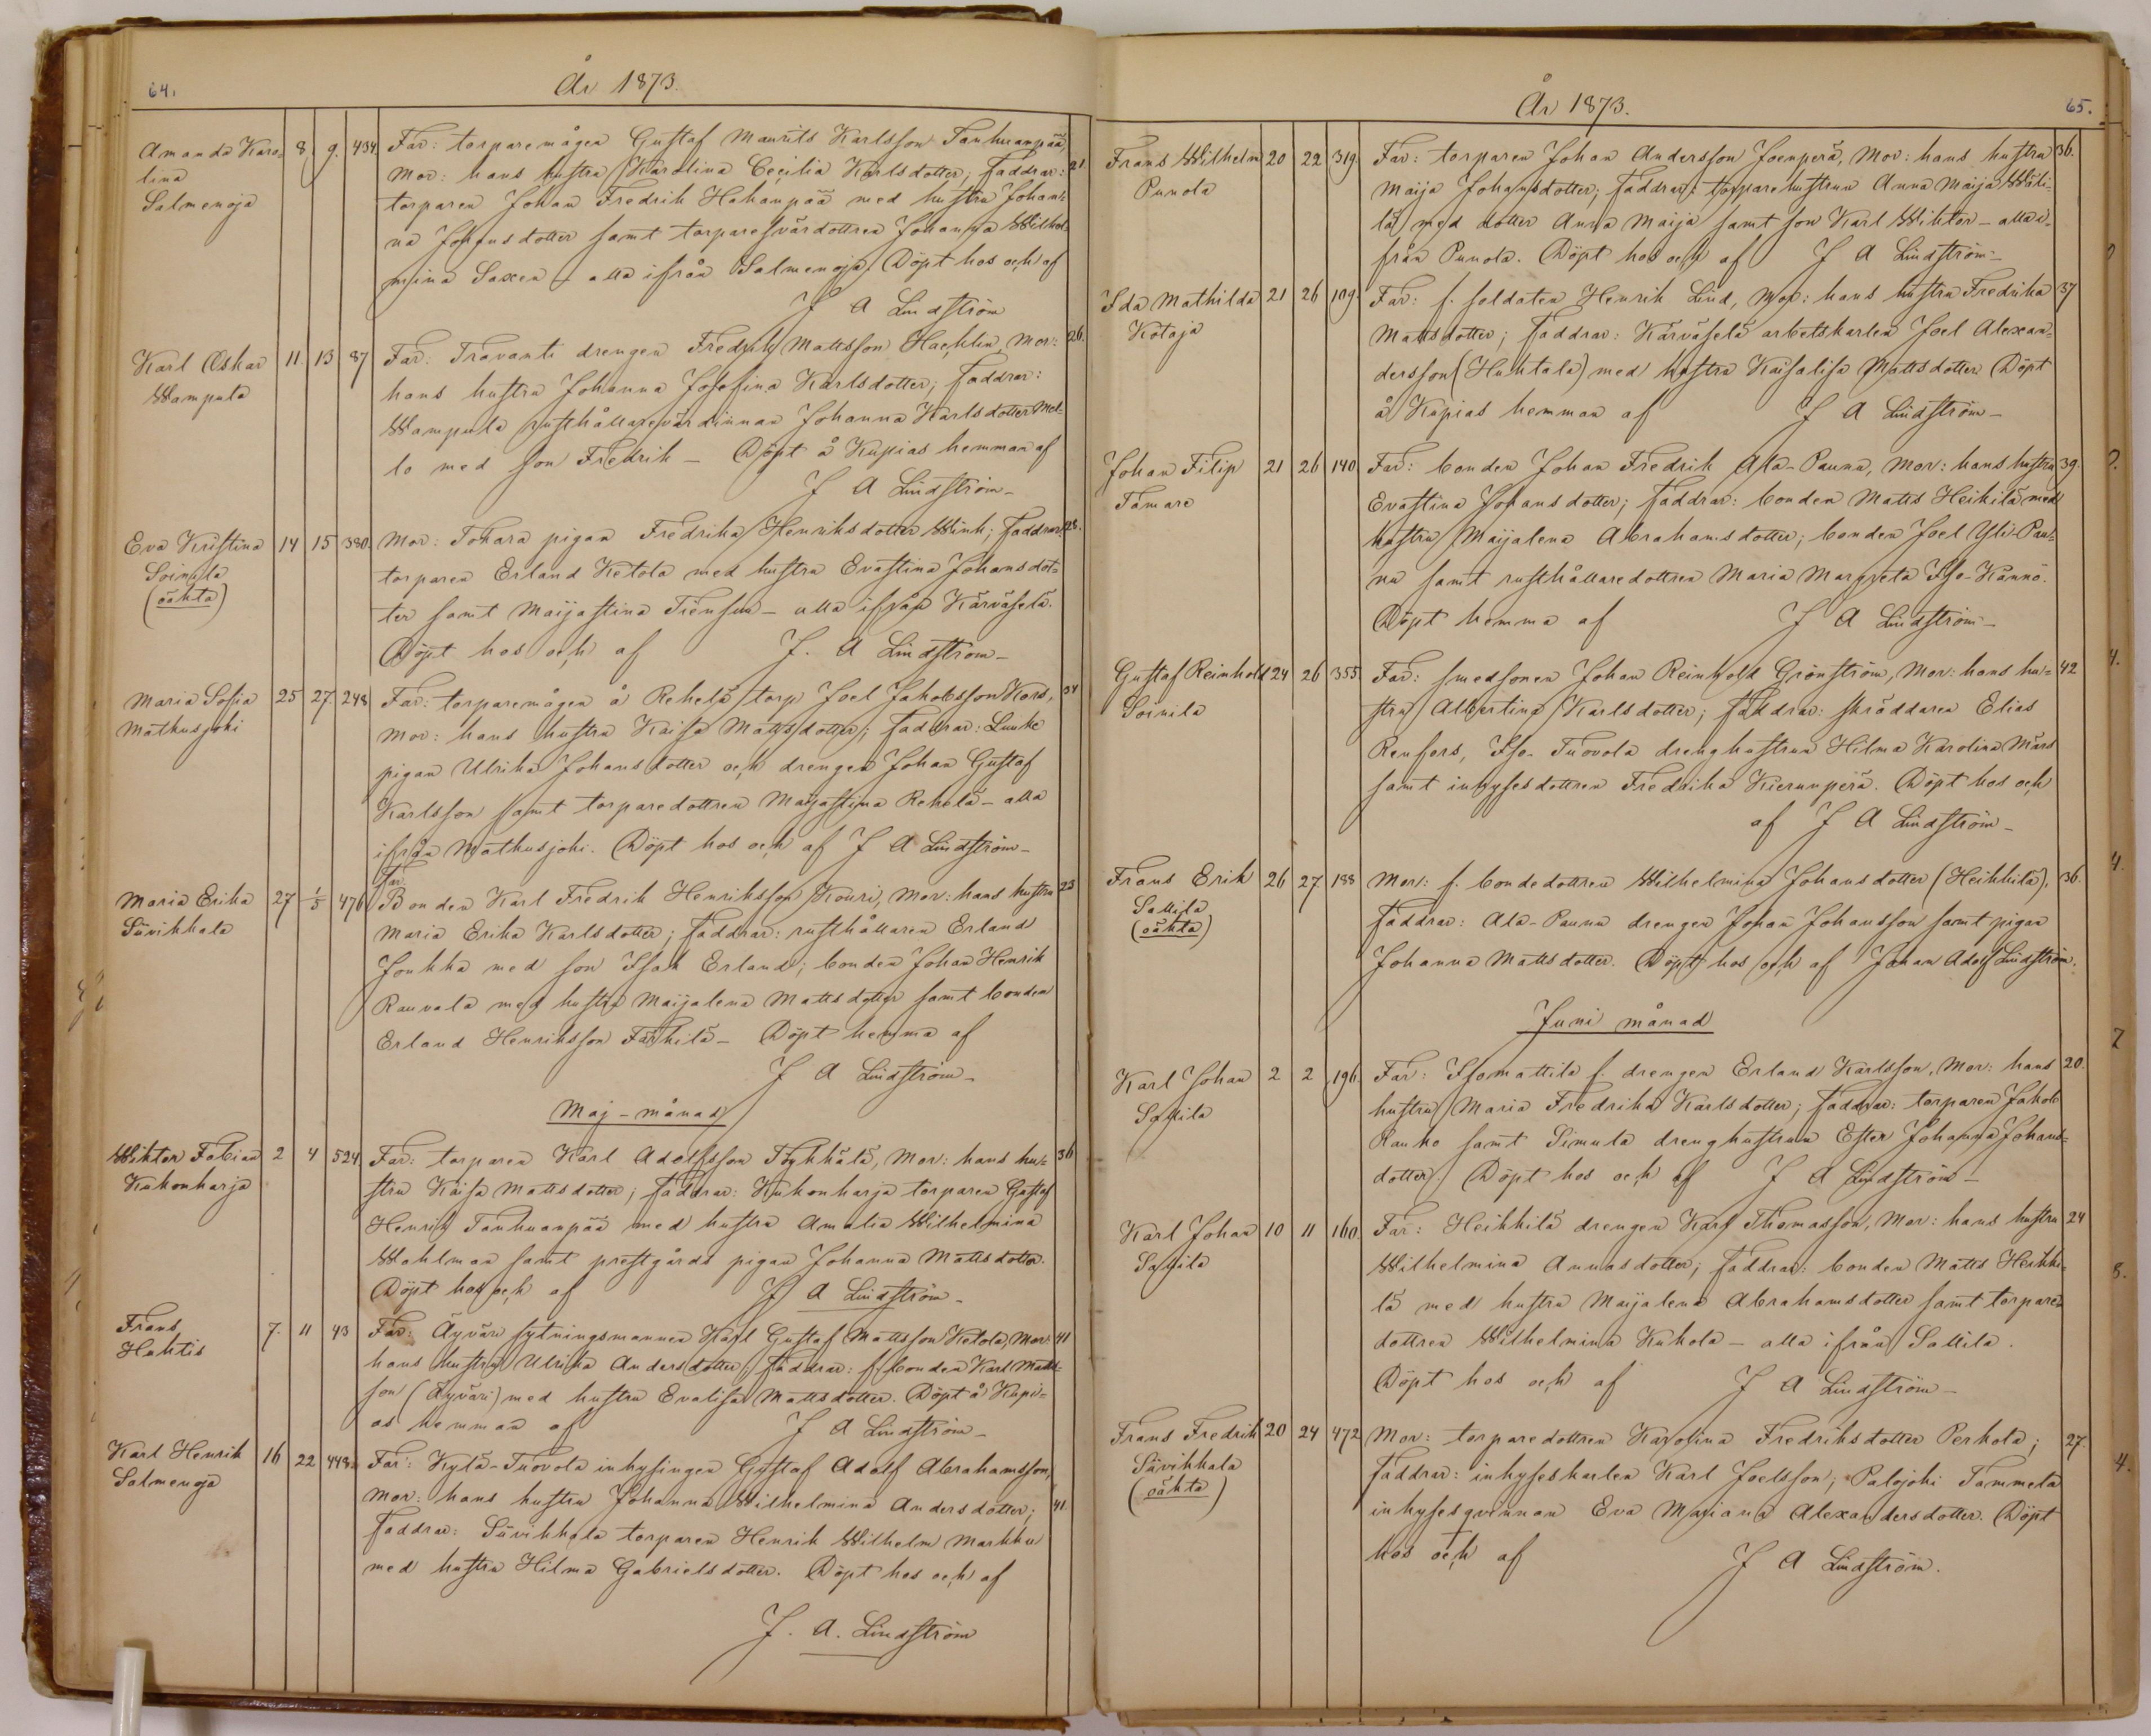 64.
År 1873.
Amanda Karo= 8 9. 434. Far: torparemågen Gustaf Maurits Karlsson Tanhuanpää, 21
lina Mor: hans hustru Karolina Cecilia Karlsdotter; Faddrar:
Salmenoja torparen Johan Fredrik Hakanpää med hustru Johan=
na Johansdotter samt torparesvärdottren Johanna Wilhel=
mina Saxen – alla ifrån Salmenoja. Döpt hos och af
J A Lindström
Karl Oskar 11. 13 87 Far: Travanti drengen Fredrik Mattsson Hacklin, Mor: 26.
Wampula hans hustru Johanna Josefina Karlsdotter; Faddrar:
Wampula rusthållarevärdinnan Johanna Karlsdotter Mel=
lo med son Fredrik – Döpt å Kupias hemman af
J A Lindström –
Eva Kristina 14 15 380. Mor: Tokara pigan Fredrika Henriksdotter Wink; Faddrar: 28.
Soinila torparen Erland Ketola med hustru Evastina Johansdot=
(oäkta) ter samt Maijastina – alla ifrån Kärväselä.
Döpt hos och af J. A Lindström –
Maria Sofia 25 27. 248 Far: torparemågen å Rehelä torp Joel Jakobsson Kors, 34
Matkusjoki Mor: hans hustru Kaisa Mattsdotter; Faddrar:
pigan Ulrika Johansdotter och drengen Johan Gustaf
Karlsson samt torparedottren Maijastina Rehelä – alla
ifrån Matkusjoki. Döpt hos och af J A Lindström –
Far:
Maria Erika 27 1/5 476 Bonden Karl Fredrik Henriksson Kouri, Mor: hans hustru 23
Süvikkala Maria Erika Karlsdotter; Faddrar: rusthållaren Erland
Jonkka med son Isak Erland; bonden Johan Henrik
Rauvala med hustru Maijalena Mattsdotter samt bonden
Erland Henriksson Färkilä – Döpt hemma af
J A Lindström –
Maj – månad
Wiktor Fabian 2 4 524 Far: torparen Karl Adolfsson Töykkälä, Mor: hans hu= 36
Kukonharja stru Kaisa Mattsdotter; Faddrar: Kukonharja torparen Gustaf
Henrik Tanhuanpää med hustru Amalia Wilhelmina
Wahlman samt prestgårds pigan Johanna Mattsdotter.
Döpt hos och af J A Lindström –
Frans 7. 11 43 Far: Äyväri sytningsmannen Karl Gustaf Mattsson Ketola, Mor: 41
Huhtis hans hustru Ulrika Andersdotter; Faddrar: f. bonden Karl Matts=
son (Äyväri) med hustru Evalisa Mattsdotter. Döpt å Kupi=
as hemman af J A Lindström –
Karl Henrik 16 22 448. Far: Kylä-Tuovola inhysingen Gustaf Adolf Abrahamsson,
Salmenoja Mor: hans hustru Johanna Wilhelmina Andersdotter; 41.
Faddrar: Süvikkala torparen Henrik Wilhelm Markku
med hustru Hilma Gabrielsdotter. Döpt hos och af
J. A. Lindström
År 1873.
65.
Frans Wilhelm 20 22 319. Far: torparen Johan Andersson Joenperä, Mor: hans hustru 36.
Punola Maija Johansdotter; Faddrar: torparehustrun Anna Maija Wäli=
lä med dotter Anna Maija samt son Karl Wiktor – alla i=
från Punola. Döpt hos och af J A Lindström –
Ida Mathilda 21 26 109. Far: f. soldaten Henrik Lind, Mor: hans hustru Fredrika 37
Kotaja Mattsdotter; Faddrar: Kärväselä arbetskarlen Joel Alexan=
dersson (Huhtala) med hustru Kaisalisa Mattsdotter. Döpt
å Kupias hemman af J A Lindström –
Johan Filip 21 26 140 Far: bonden Johan Fredrik Ala-Pauna, Mor: hans hustru 39.
Tamare Evastina Johansdotter; Faddrar: bonden Matts Heikilä med
hustru Maijalena Abrahamsdotter; bonden Joel Yli-Pau=
na samt rusthållaredottren Maria Margreta Iso-Kännö.
Döpt hemma af J A Lindström –
Gustaf Reinhold 24 26 355. Far: smedsonen Johan Reinhold Grönström, Mor: hans hu= 42
Soinila stru Albertina Karlsdotter; Faddrar: skräddaren Elias
Renfors, Iso-Tuovola drenghustrun Hilma Karolina Mars
samt inhysesdottren Fredrika Kierunperä. Döpt hos och
af J A Lindström –
Frans Erik 26 27 188 Mor: f. bondedottren Wilhelmina Johansdotter (Heikkilä), 36.
Sallila Faddrar: Ala-Pauna drengen Johan Johansson samt pigan
(oäkta) Johanna Mattsdotter. Döpt hos och af Johan Adolf Lindström.
Juni månad
Karl Johan 2 2 196. Far: Isomattila f. drengen Erland Karlsson, Mor: hans 20.
Sallila hustru Maria Fredrika Karlsdotter; Faddrar: torparen Jakob
Rauko samt Simula drenghustrun Ester Johanna Johans=
dotter. Döpt hos och af J A Lindström –
Karl Johan 10 11 160. Far: Heikkilä drengen Karl Thomasson, Mor: hans hustru 24
Sallila Wilhelmina Annasdotter; Faddrar: bonden Matts Heikki=
lä med hustru Maijalena Abrahamsdotter samt torpare=
dottren Wilhelmina Kukola – alla ifrån Sallila.
Döpt hos och af J A Lindström –
Frans Fredrik 20 24 472 Mor: torparedottren Karolina Fredriksdotter Perkola; 27.
Süvikkala Faddrar: inhyseskarlen Karl Joelsson; Palojoki Tammela
(oäkta) inhysesqvinnan Eva Mariana Alexandersdotter. Döpt
hos och af J A Lindström.